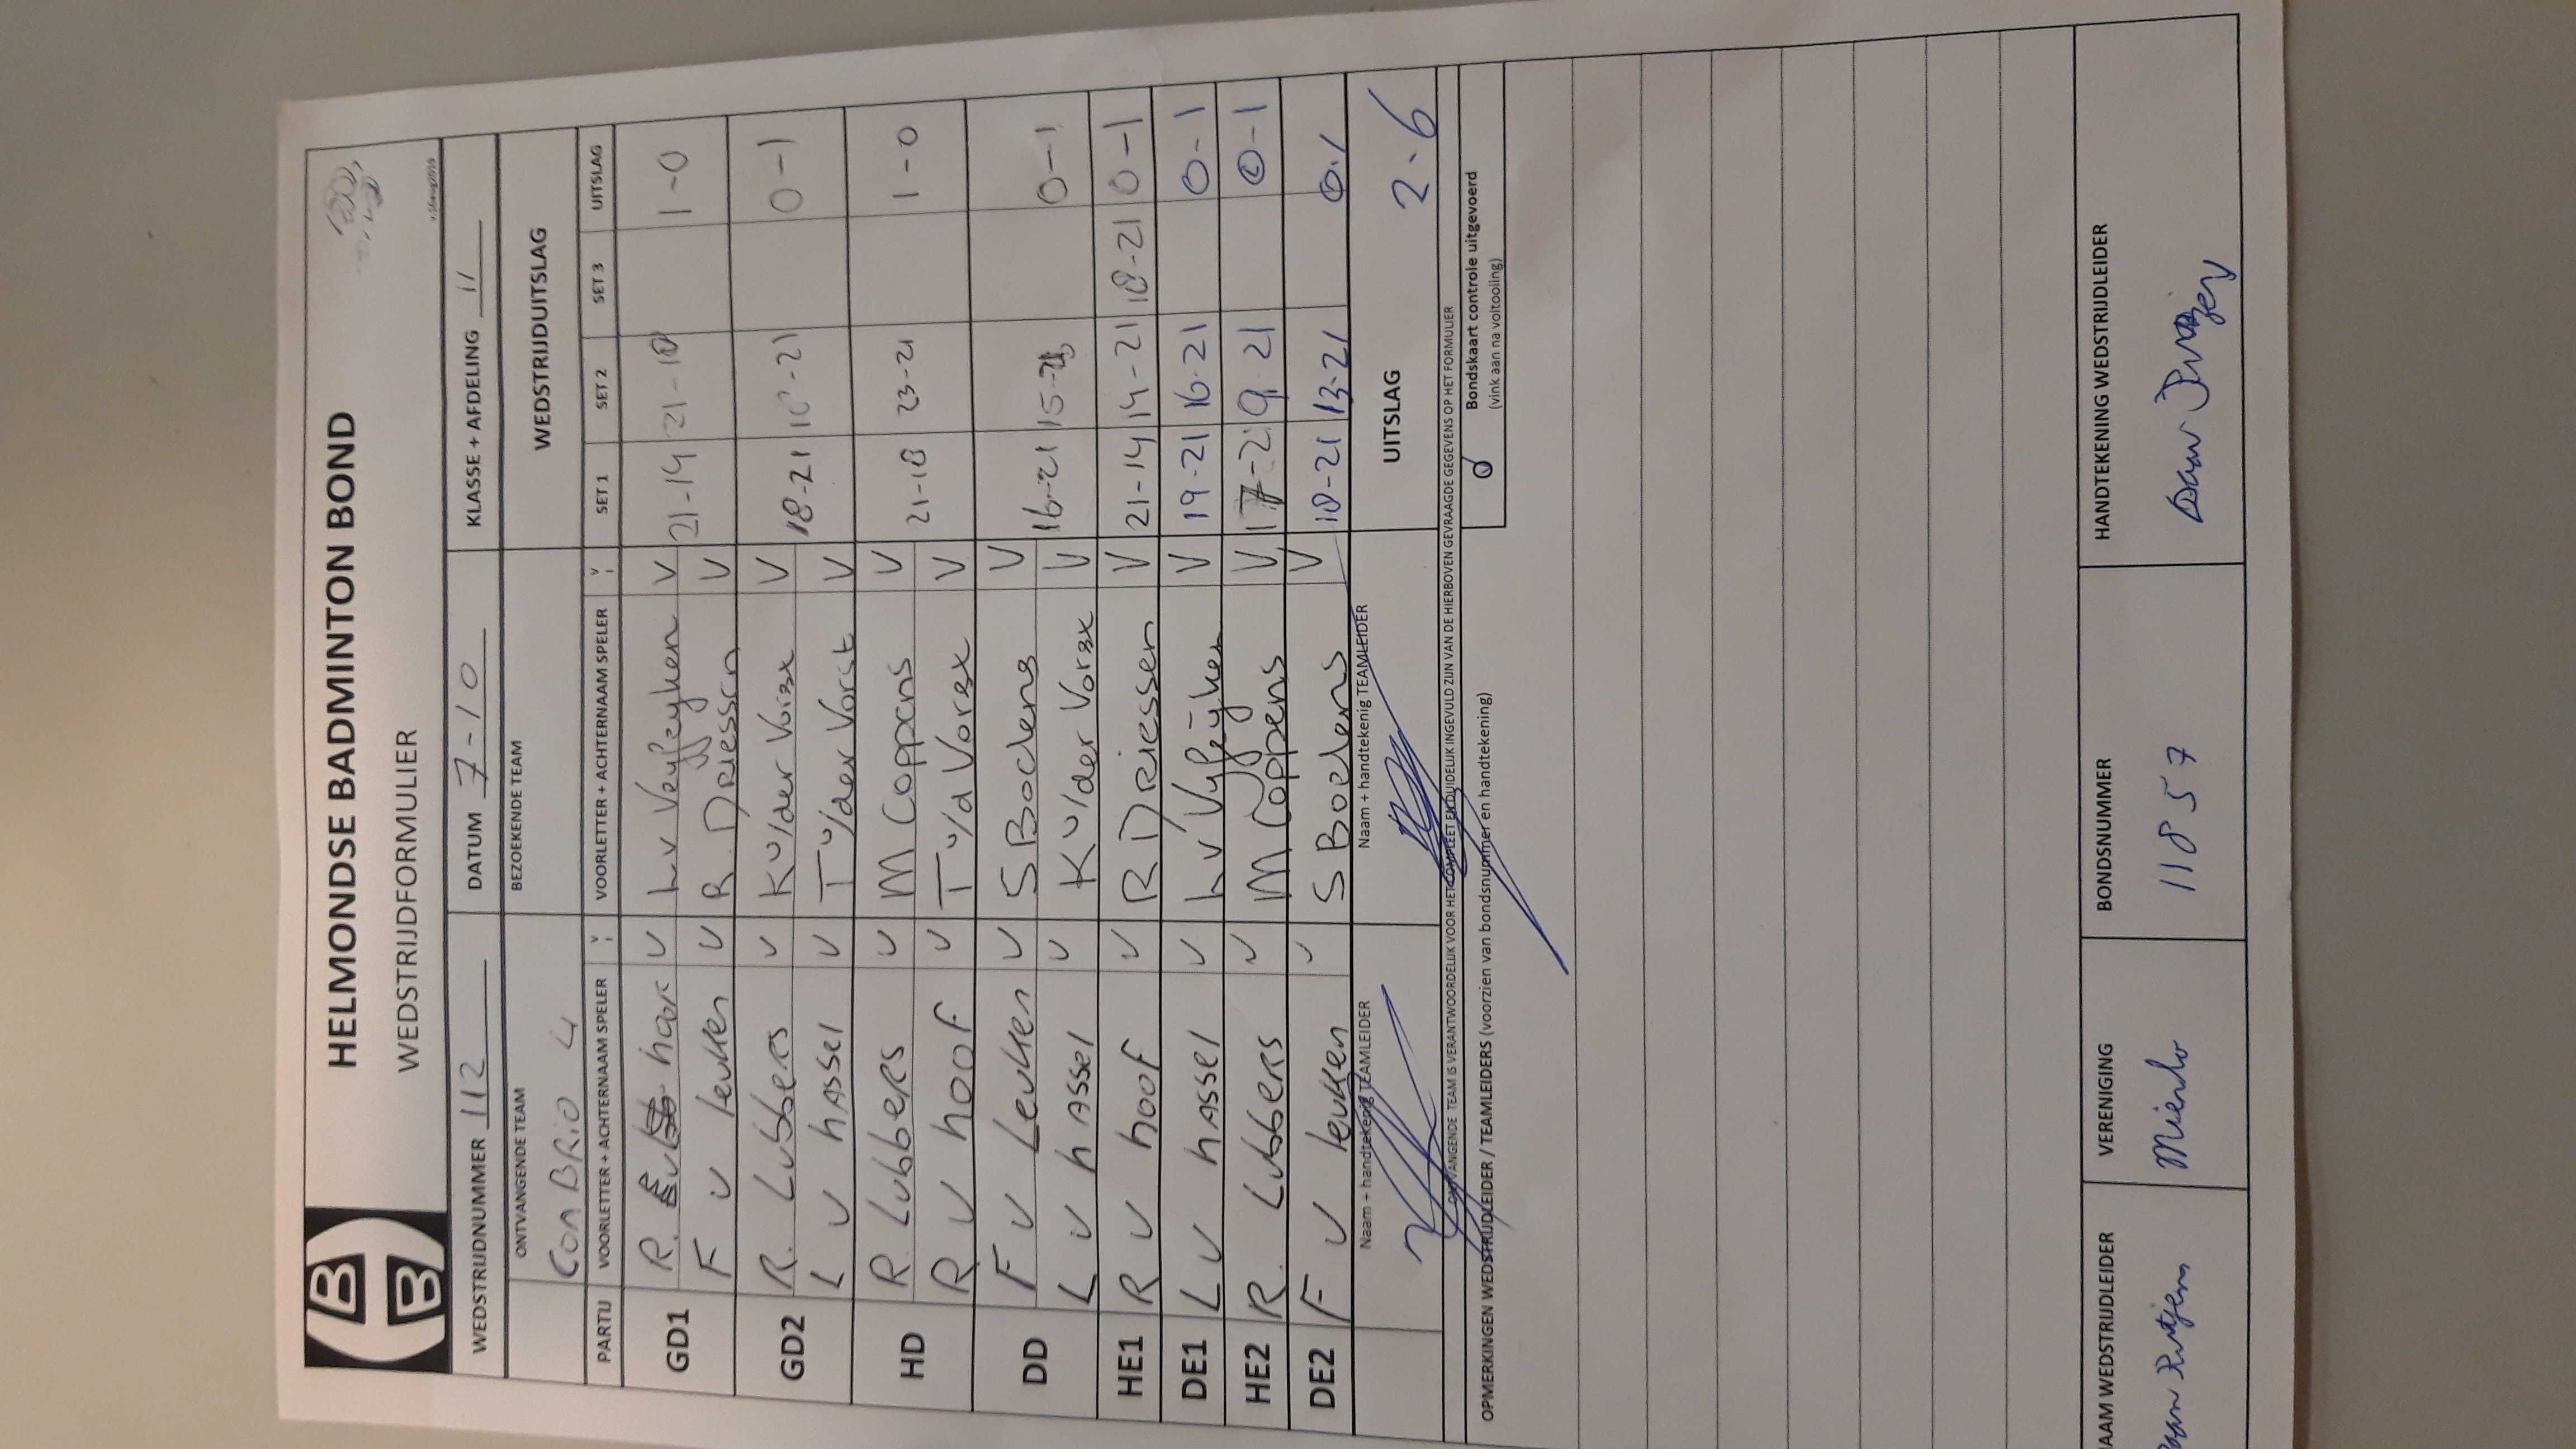 HELMONDSE BADMINTON BOND
WEDSTRIJDFORMULIER
WEDSTRIJDNUMMER 112 DATUM 7-10 KLASSE + AFDELING 11
ONTVANGENDE TEAM BEZOEKENDE TEAM WEDSTRIJDUITSLAG
Con BRiO 4
PARTIJ VOORLETTER + ACHTERNAAM SPELER V VOORLETTER + ACHTERNAAM SPELER V SET 1 SET 2 SET 3 UITSLAG
GD1 R. v haar V L v Veyfeyken V 21-14 21-10 1-0
F v leuken V R. Driessen V
GD2 R. Lubbers V K v/der Vorst V 18-21 18-21 0-1
L v hassel V T v/der Vorst V
HD R. Lubbers V M Coppens V 21-18 23-21 1-0
R v hoof V T v/d Vorst V
DD F v Leuken V S Boelens V 16-21 15-21 0-1
L v hassel V K v/der Vorst V
HE1 R v hoof V R Driessen V 21-14 14-21 18-21 0-1
DE1 L v hassel V L v Vyfeijken V 19-21 16-21 0-1
HE2 R. Lubbers V M Coppens V 17-21 9-21 0-1
DE2 F v leuken V S Boelens V 18-21 13-21 0-1
Naam + handtekenig TEAMLEIDER Naam + handtekenig TEAMLEIDER UITSLAG 2-6
ONTVANGENDE TEAM IS VERANTWOORDELIJK VOOR HET COMPLEET EN DUIDELIJK INGEVULD ZIJN VAN DE HIERBOVEN GEVRAAGDE GEGEVENS OP HET FORMULIER
OPMERKINGEN WEDSTRIJDLEIDER / TEAMLEIDERS (voorzien van bondsnummer en handtekening)
Bondskaart controle uitgevoerd
(vink aan na voltooiing)
NAAM WEDSTRIJDLEIDER VERENIGING BONDSNUMMER HANDTEKENING WEDSTRIJDLEIDER
Mierlo 11857